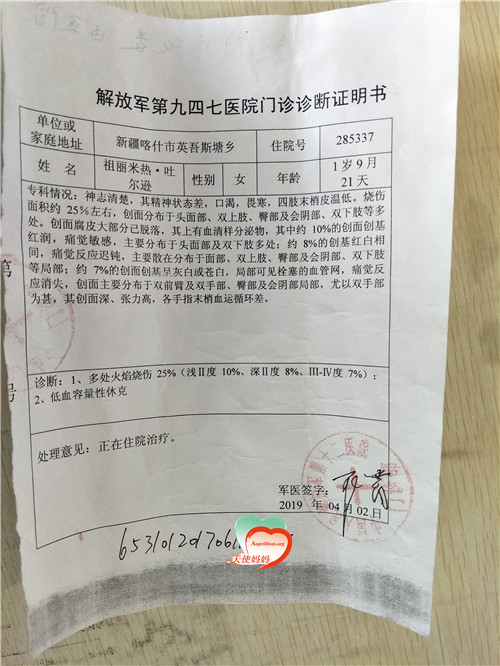 解放军第九四七医院门诊诊断证明书
单位或
家庭地址
新疆喀什市英吾斯塘乡
住院号
285337
姓 名
祖丽米热·吐
尔逊
性别
女
年龄
1岁9月
21天
专科情况：神志清楚，其精神状态差，口渴，畏寒，四肢末梢皮温低。烧伤
面积约 25%左右，创面分布于头面部、双上肢、臀部及会阴部、双下肢等多
处。创面腐皮大部分已脱落，其上有血清样分泌物，其中约 10%的创面创基
红润，痛觉敏感，主要分布于头面部及双下肢多处；约 8%的创基红白相
间，痛觉反应迟钝，主要散在分布于面部、双上肢、臀部及会阴部、双下肢
等局部；约 7%的创面创基呈灰白或苍白，局部可见栓塞的血管网，痛觉反
应消失，创面主要分布于双前臂及双手部、臀部及会阴部局部，尤以双手部
为甚，其创面深、张力高，各手指末梢血运循环差。
第
号
诊断：1、多处火焰烧伤 25%（浅Ⅱ度 10%、深Ⅱ度 8%、Ⅲ-Ⅳ度 7%）；
2、低血容量性休克
处理意见：正在住院治疗。
第十二医院
军医签字：
2019 年 04 月 02 日
6531012017061
AngelMom.org
天使妈妈